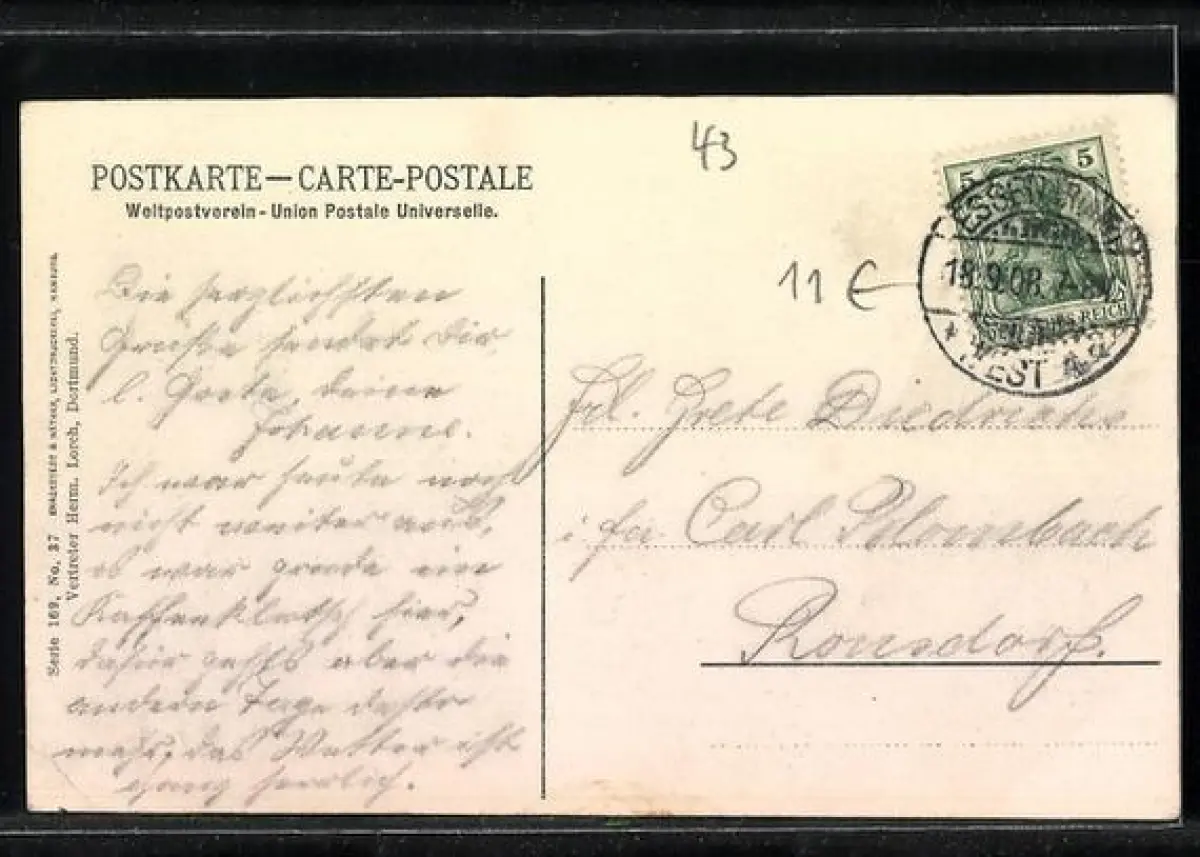 POSTKARTE—CARTE-POSTALE
Weltpostverein - Union Postale Universelle.
43
11 €
5 5
ESSEN
18.9.08.
REICH
WEST
Die herzlichsten
Grüße sendet Dir
l. Grete, deine
Johanne.
Ich war heute noch
nicht weiter aus,
es war grade ein
Kaffeeklatsch hier,
dafür gehts aber die
andern Tage desto
mehr, das Wetter ist
ganz herrlich.
Frl. Grete Diedrichs
i/fa Carl Blombach
Ronsdorf.
Serie 169, No. 37
Vertreter Herm. Lorch, Dortmund.